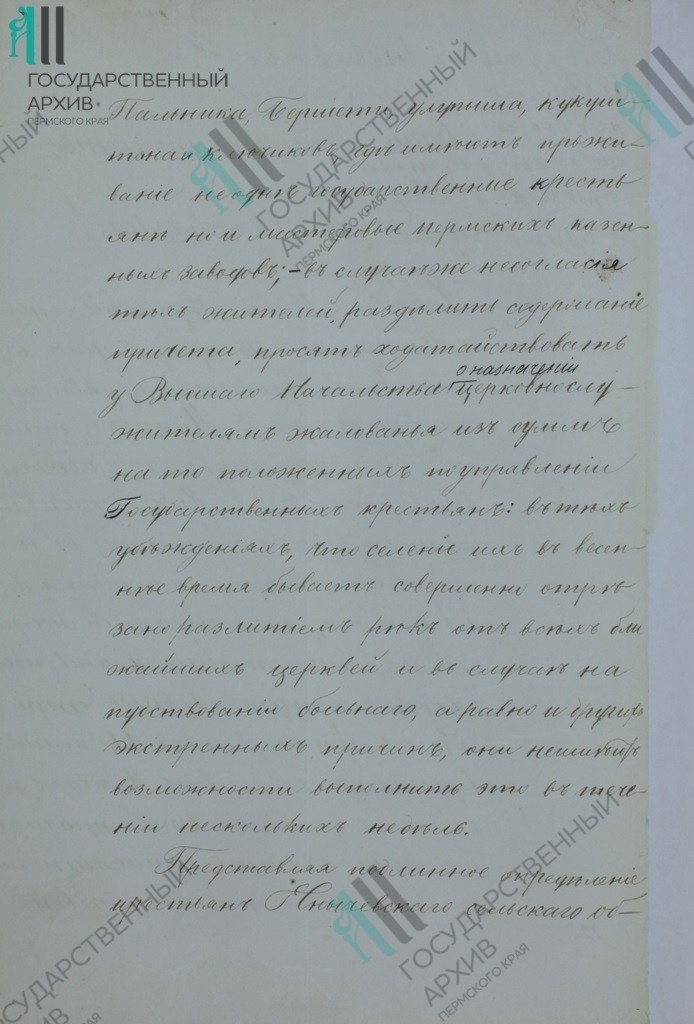 ГОСУДАРСТВЕННЫЙ
АРХИВ
ПЕРМСКОГО КРАЯ
Пальника, Бершети, Улупыша, Кукуш-
тана и Ключиковъ где имѣютъ прожи-
ваніе не однѣ государственные кресть
янѣ но и мастеровые пермскихъ казен-
ныхъ заводовъ; – въ случаѣ же несогласія
тѣхъ жителей, раздѣлить содержаніе
причета, просятъ ходатайствовать
о назначеніи
у Высшаго Начальства церковнослу-
жителямъ жалованья изъ суммъ
на то положенныхъ по управленію
Государственныхъ крестьянъ: въ тѣхъ
убѣжденіяхъ, что селеніе ихъ въ весен-
нѣе время бываетъ совершенно отрѣ
зано разлитіемъ рѣкъ отъ всѣхъ бли
жайшихъ церквей и въ случаѣ на
путствованіи больнаго, а равно и другихъ
экстренныхъ причинъ, они неимѣютъ
возможности выполнить это въ тече-
ніи несколькихъ недѣль.
Представляя подлинное
крестьянъ Янычевскаго сельскаго об-